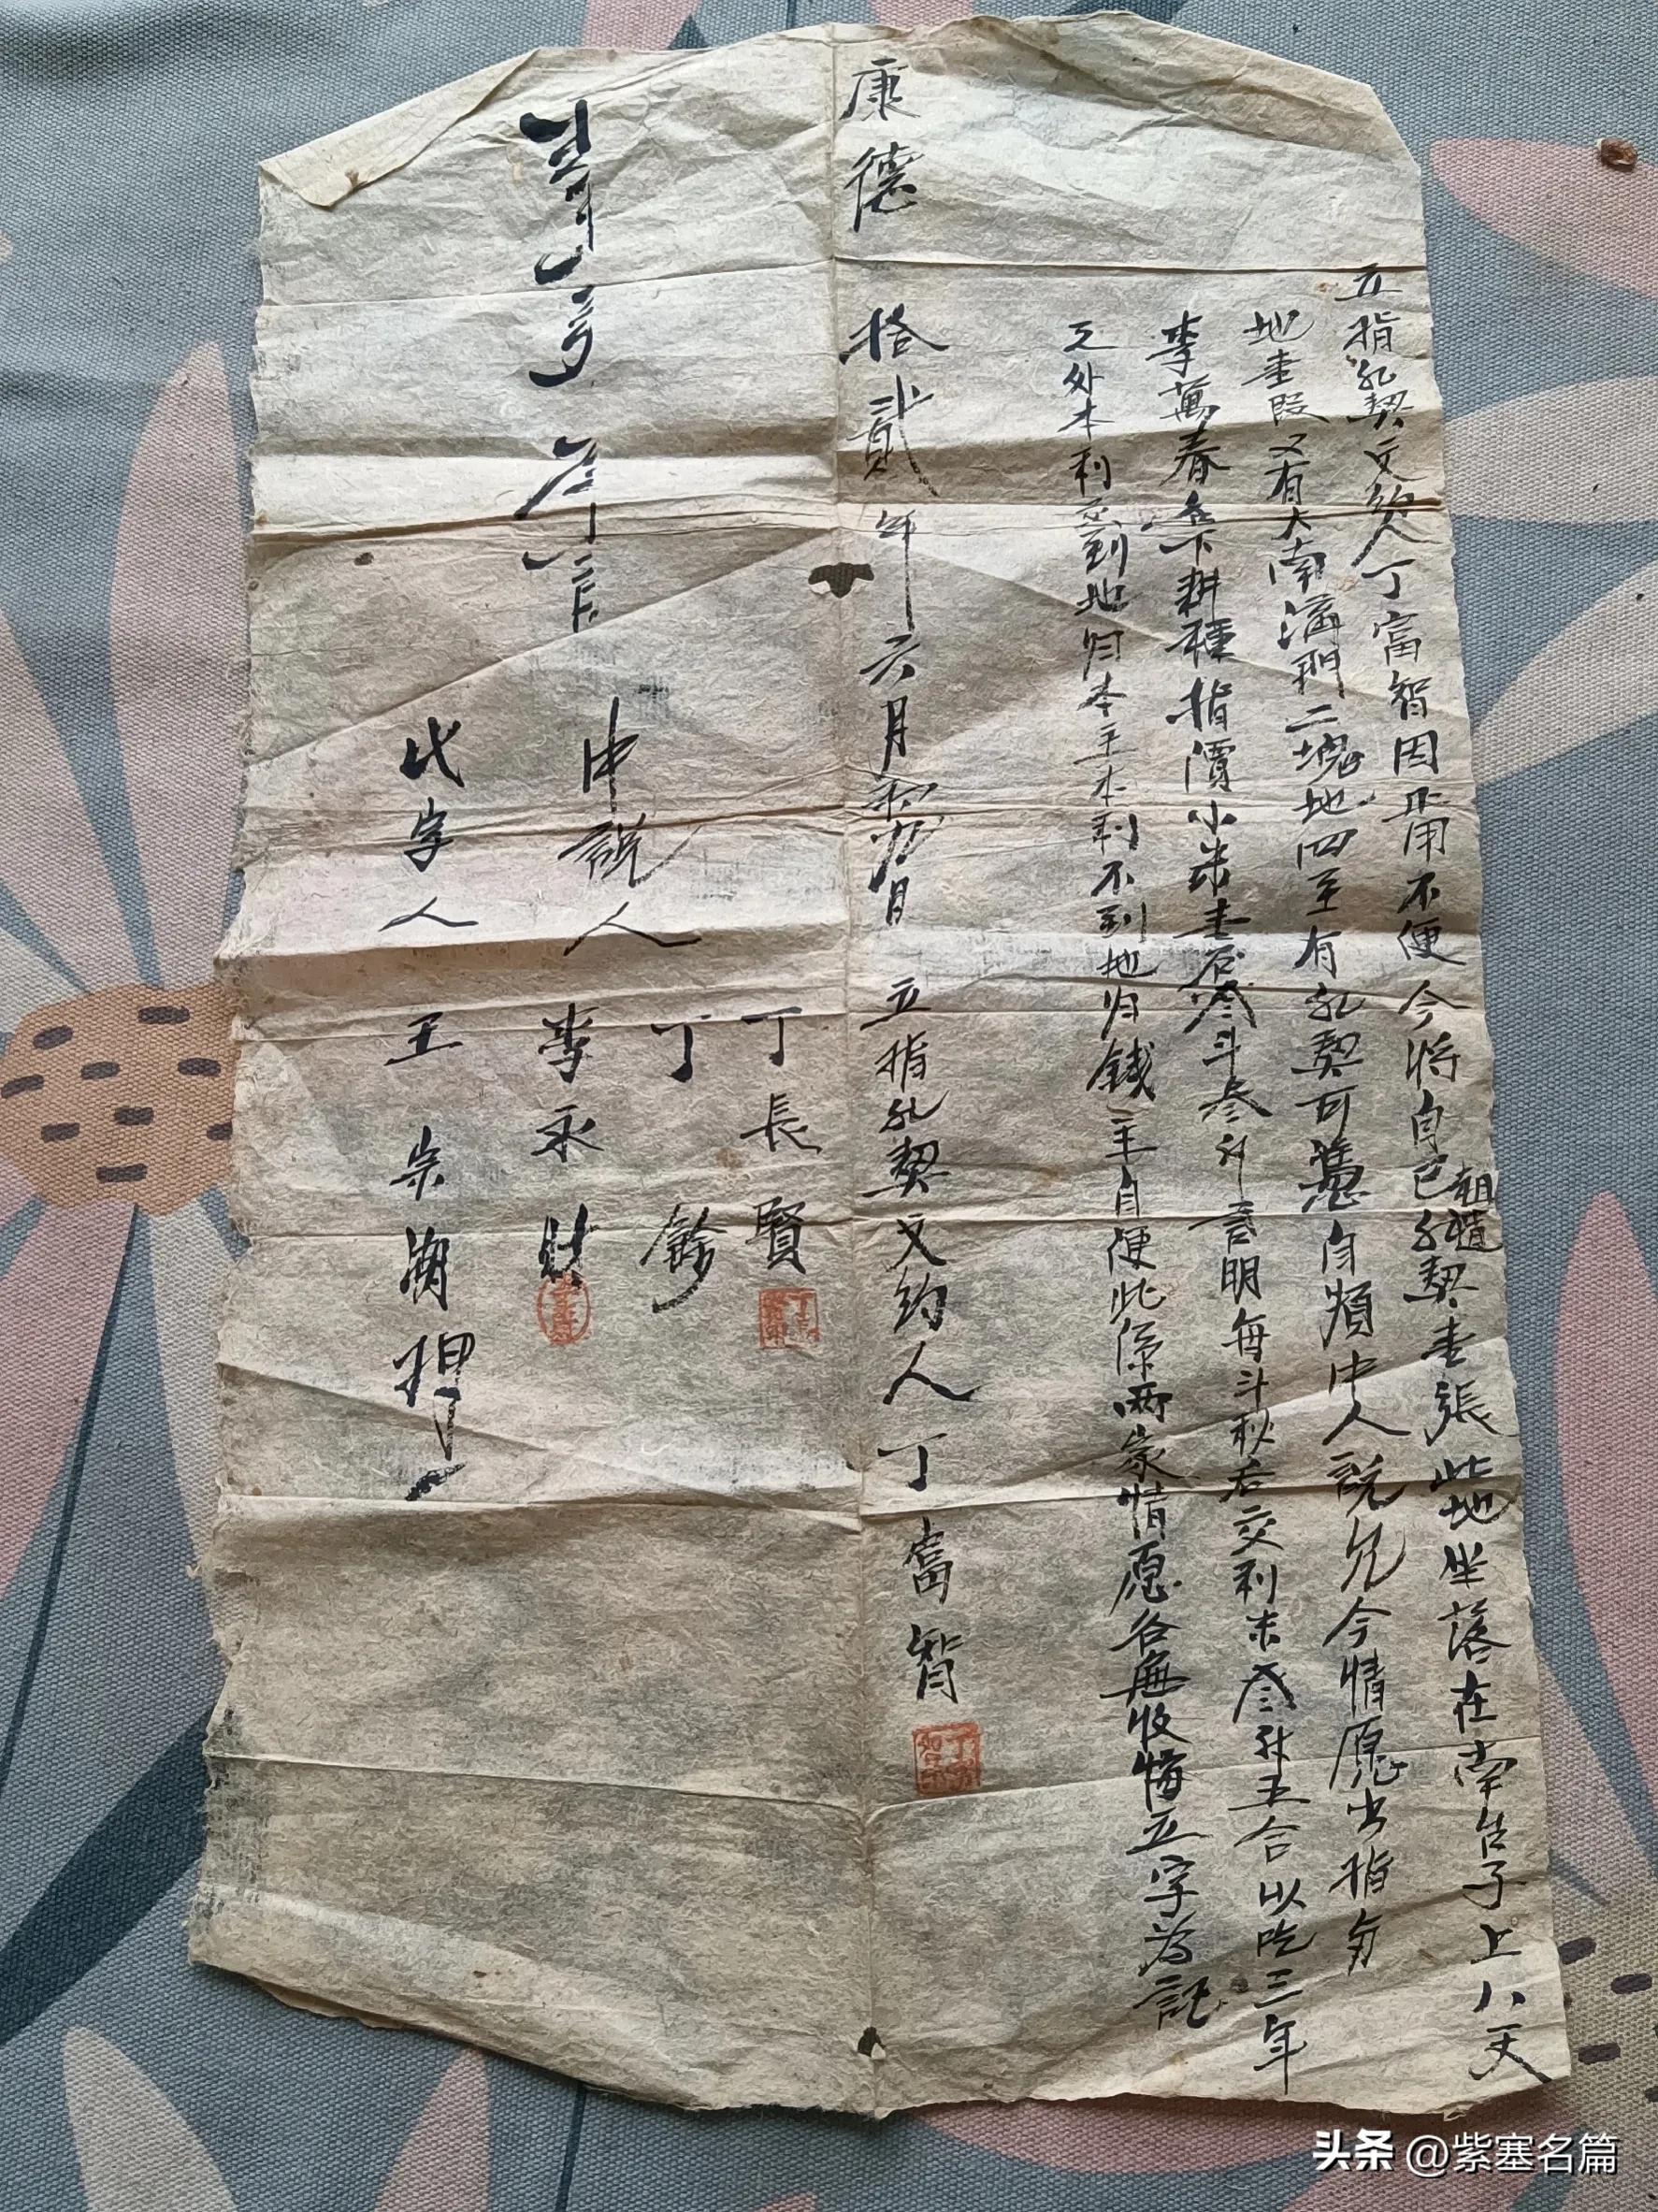 立指紅契文約人丁富智因正用不便今將自己祖遺紅契壹張此地坐落在南台子上八天
地壹段又有大南溝門二塊地四至有紅契可憑自煩中人說允今情愿出指與
李萬春名下耕種指價小米壹石叁斗叁升言明每斗秋后交利米叁升五合以吃三年
之外本利交到地归本主本利不到地归錢主自便此係兩家情愿各無收悔立字為証
康德拾貳年六月初九日 立指紅契文約人丁富智
丁長賢
中說人 丁餘
李永財
代字人 王宗湖押
头条 @紫塞名篇